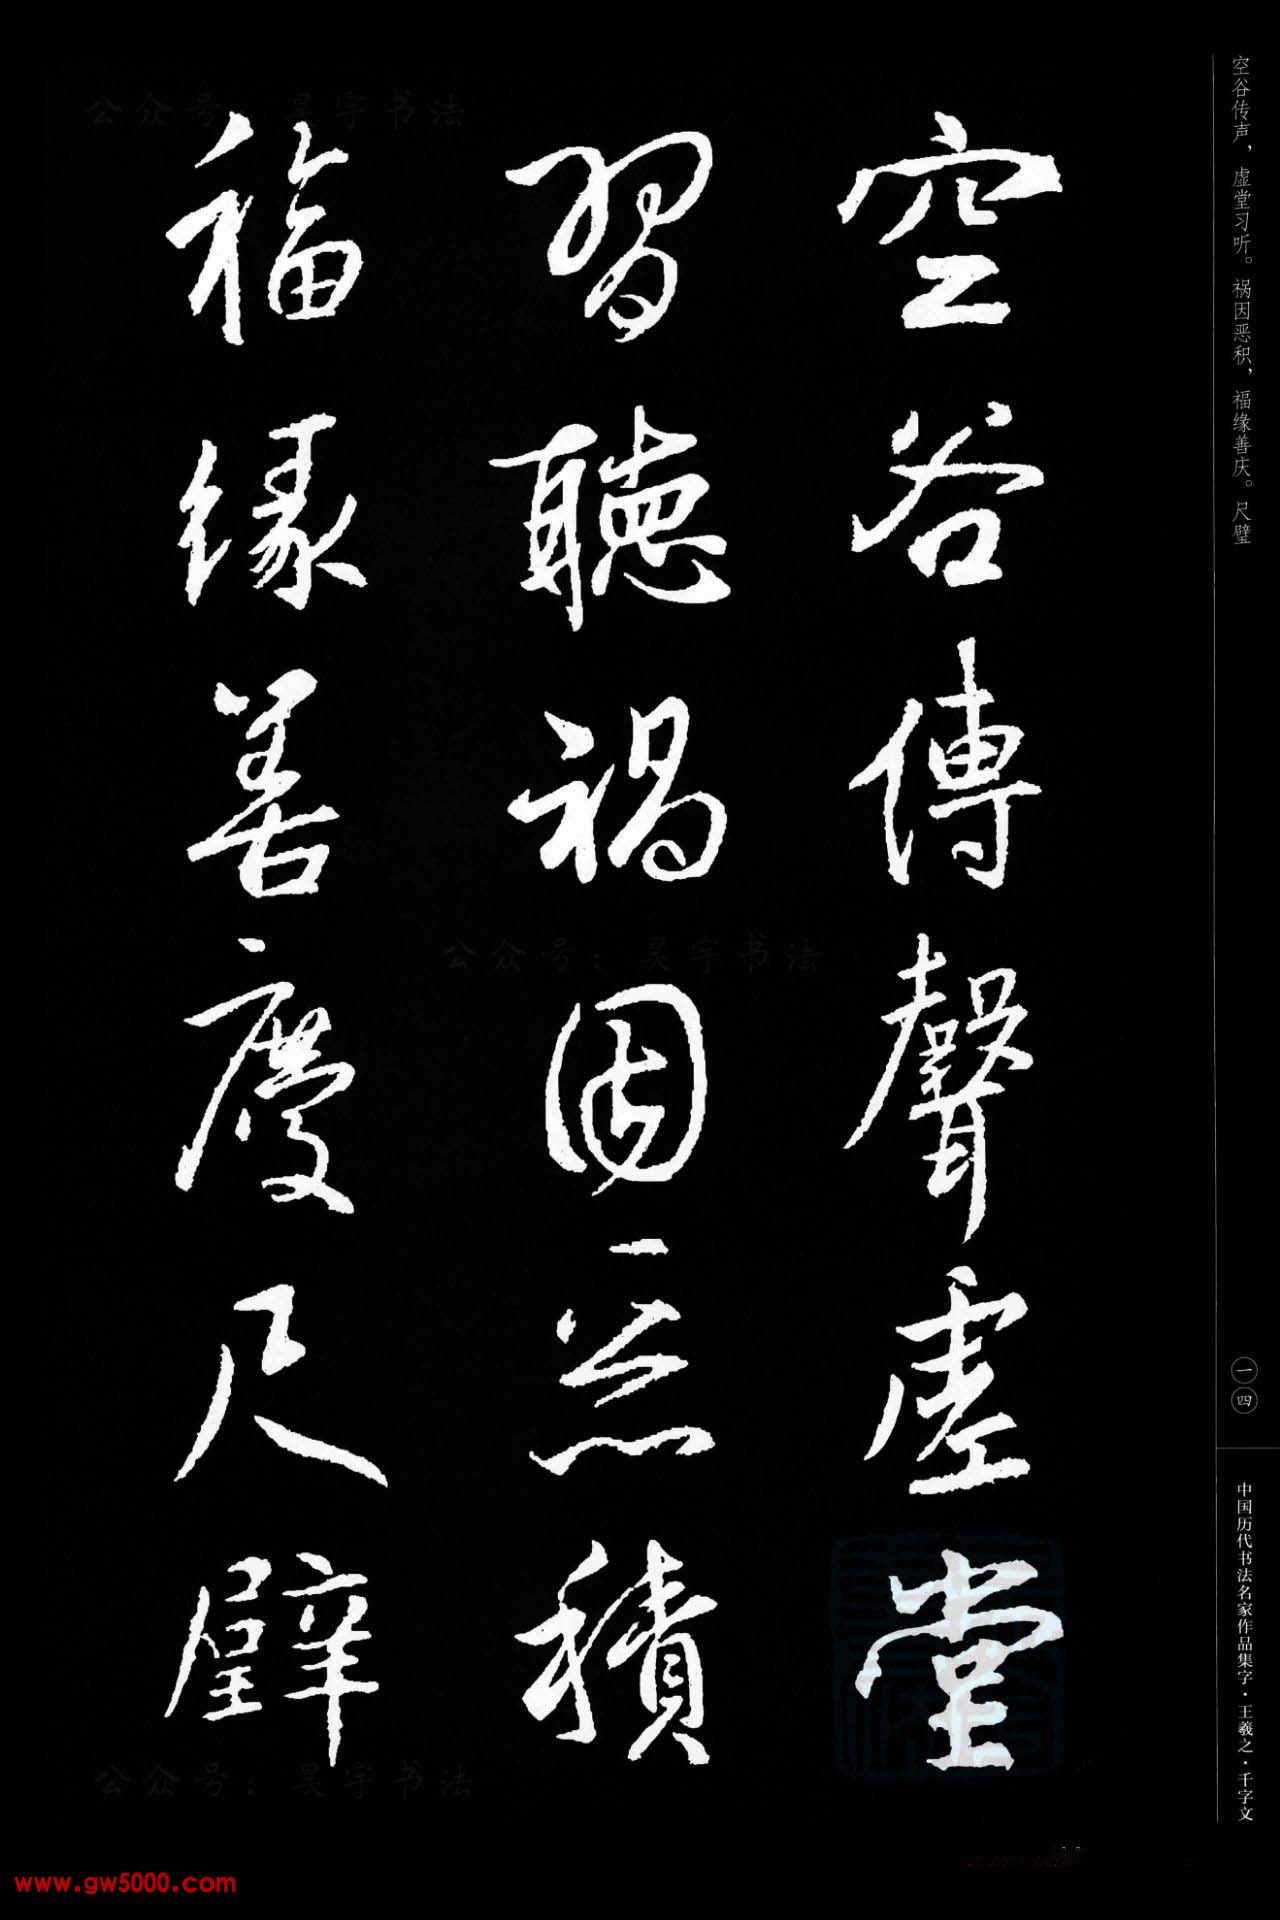 空谷传声，虚堂习听。祸因恶积，福缘善庆。尺璧
一四
中国历代书法名家作品集字·王羲之·千字文
空谷傳聲虛堂
習聽禍因惡積
福緣善慶尺璧
公众号：昊宇书法
公众号：昊宇书法
公众号：昊宇书法
www.gw5000.com